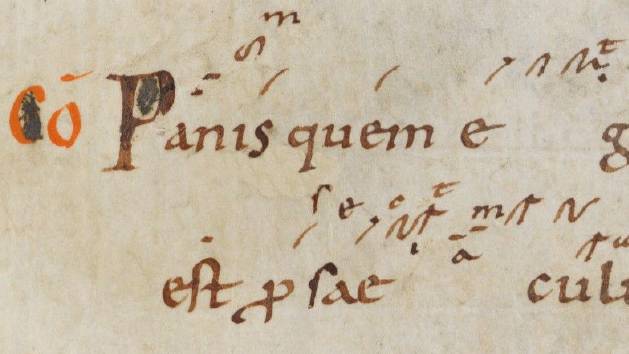 Cō Panis quem e g
est ꝓ sae cul